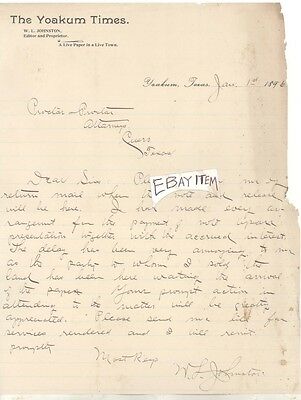 The Yoakum Times.
W. L. JOHNSTON,
Editor and Proprietor.
A Live Paper in a Live Town.
Yoakum, Texas, Jan. 1st 1896
Proctor & Proctor
Attorneys
Cuero
Texas
EBAY ITEM
Dear Sirs Please me by
return mail when the note and release
will be here. I have made
arrangement for the payment of note upon
presentation together with the accrued interest.
The delay has been very annoying to me
as the party to whom I sold the
land has been here waiting the arrival
of the papers. Your prompt action in
attending to the matter will be greatly
appreciated. Please send me bill for
services rendered and I will remit
promptly
Most Resp
W. L. Johnston